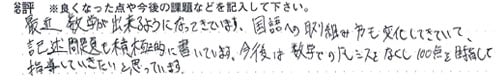 総評 ※良くなった点や今後の課題などを記入して下さい。
最近、数学が出来るようになってきています。国語への取り組み方も変化してきていて、
記述問題も積極的に書いています。今後は数学でのミスをなくし100点を目指して
指導していきたいと思っています。